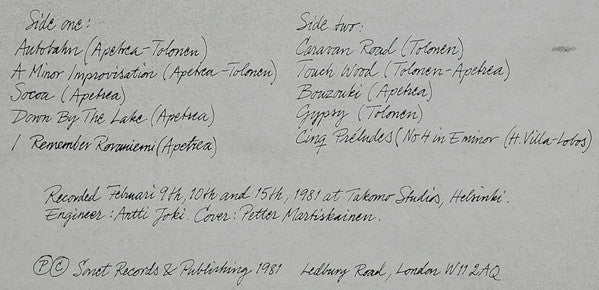 Side one:
Autobahn (Apetrea-Tolonen)
A Minor Improvisation (Apetrea-Tolonen)
Socoa (Apetrea)
Down By The Lake (Apetrea)
I Remember Rovaniemi (Apetrea)
Side two:
Caravan Road (Tolonen)
Touch Wood (Tolonen-Apetrea)
Bouzouki (Apetrea)
Gypsy (Tolonen)
Cinq Préludes (No 4 in E minor (H. Villa-Lobos)
Recorded Februari 9th, 10th and 15th, 1981 at Takomo Studios, Helsinki.
Engineer: Antti Joki. Cover: Petter Martiskainen.
Ⓟ© Sonet Records & Publishing 1981 Ledbury Road, London W11 2AQ